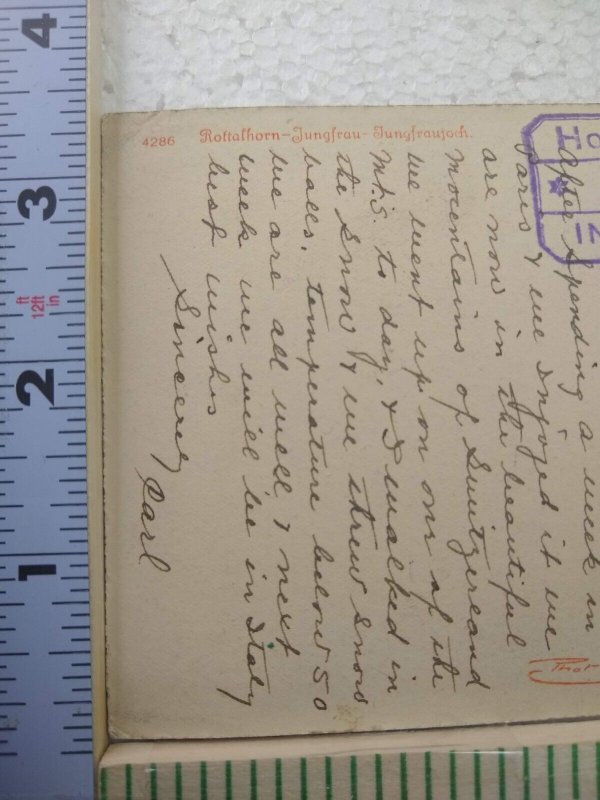 4286 Rottalhorn-Jungfrau-Jungfraujoch.
After Spending a week in
Paris & we Injoyed it we
are now in the beautiful
mountains of Switzereand
we went up on one of the
Mts. to day, & I walked in
the Snow & we threw Snow
balls. temperature below 50
we are all well, & next
week we will be in Italy
best wishes
Sincerely
Carl
4
3
ft
12ft
in
2
1